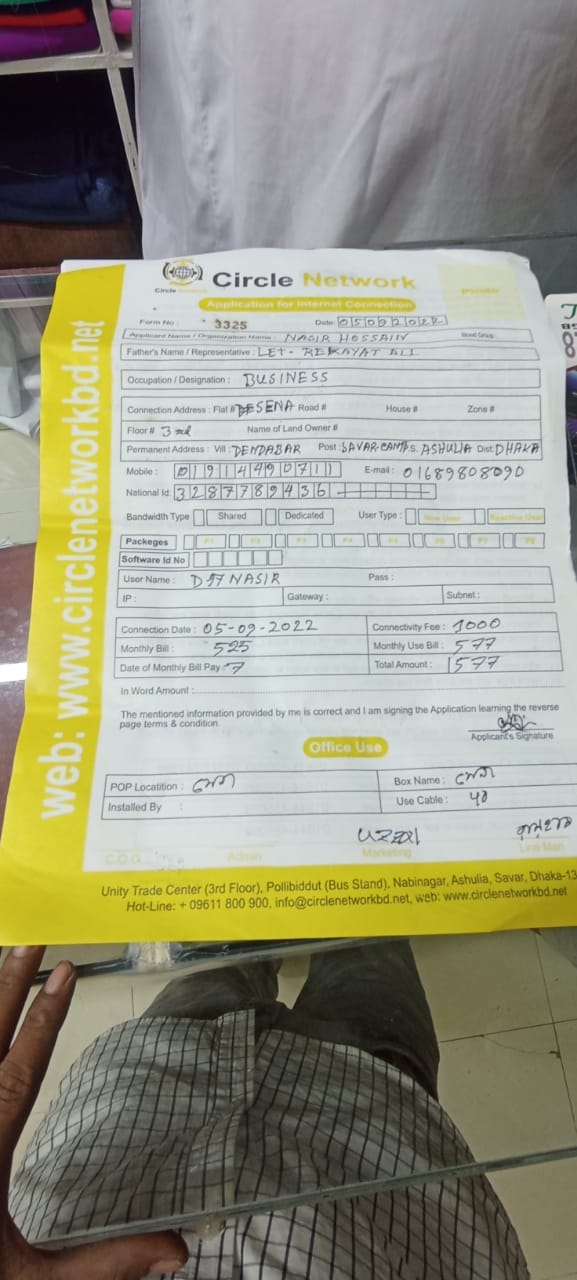 web: www.circlenetworkbd.net
Circle Network
Circle
Application for Internet Connection
Form No : 3325 Date: 05092022
Applicant Name / Organization Name : NASIR HOSSAIN Blood Group:
Father's Name / Representative : LET- REKAYAT ALI
Occupation / Designation : BUSINESS
Connection Address : Flat # SENA Road # House # Zone #
Floor # 3rd Name of Land Owner #
Permanent Address : Vill : DENDABAR Post : SAVAR-CANT P.S: ASHULIA Dist: DHAKA
Mobile : 01914490711 E-mail : 01689808090
National Id: 3287789436
Bandwidth Type Shared Dedicated User Type : New User Reactive User
Packeges P1 P2 P3 P4 P5 P6 P7 P8
Software Id No
User Name : NASIR Pass :
IP : Gateway : Subnet :
Connection Date : 05-09-2022 Connectivity Fee : 1000
Monthly Bill : 525 Monthly Use Bill : 577
Date of Monthly Bill Pay : 7 Total Amount : 1577
In Word Amount :
The mentioned information provided by me is correct and I am signing the Application learning the reverse
page terms & condition.
Applicant's Signature
Office Use
POP Locatition : Box Name :
Installed By : Use Cable :
C.O.O Admin Marketing Line Man
Unity Trade Center (3rd Floor), Pollibiddut (Bus Stand), Nabinagar, Ashulia, Savar, Dhaka-13
Hot-Line: + 09611 800 900, info@circlenetworkbd.net, web: www.circlenetworkbd.net